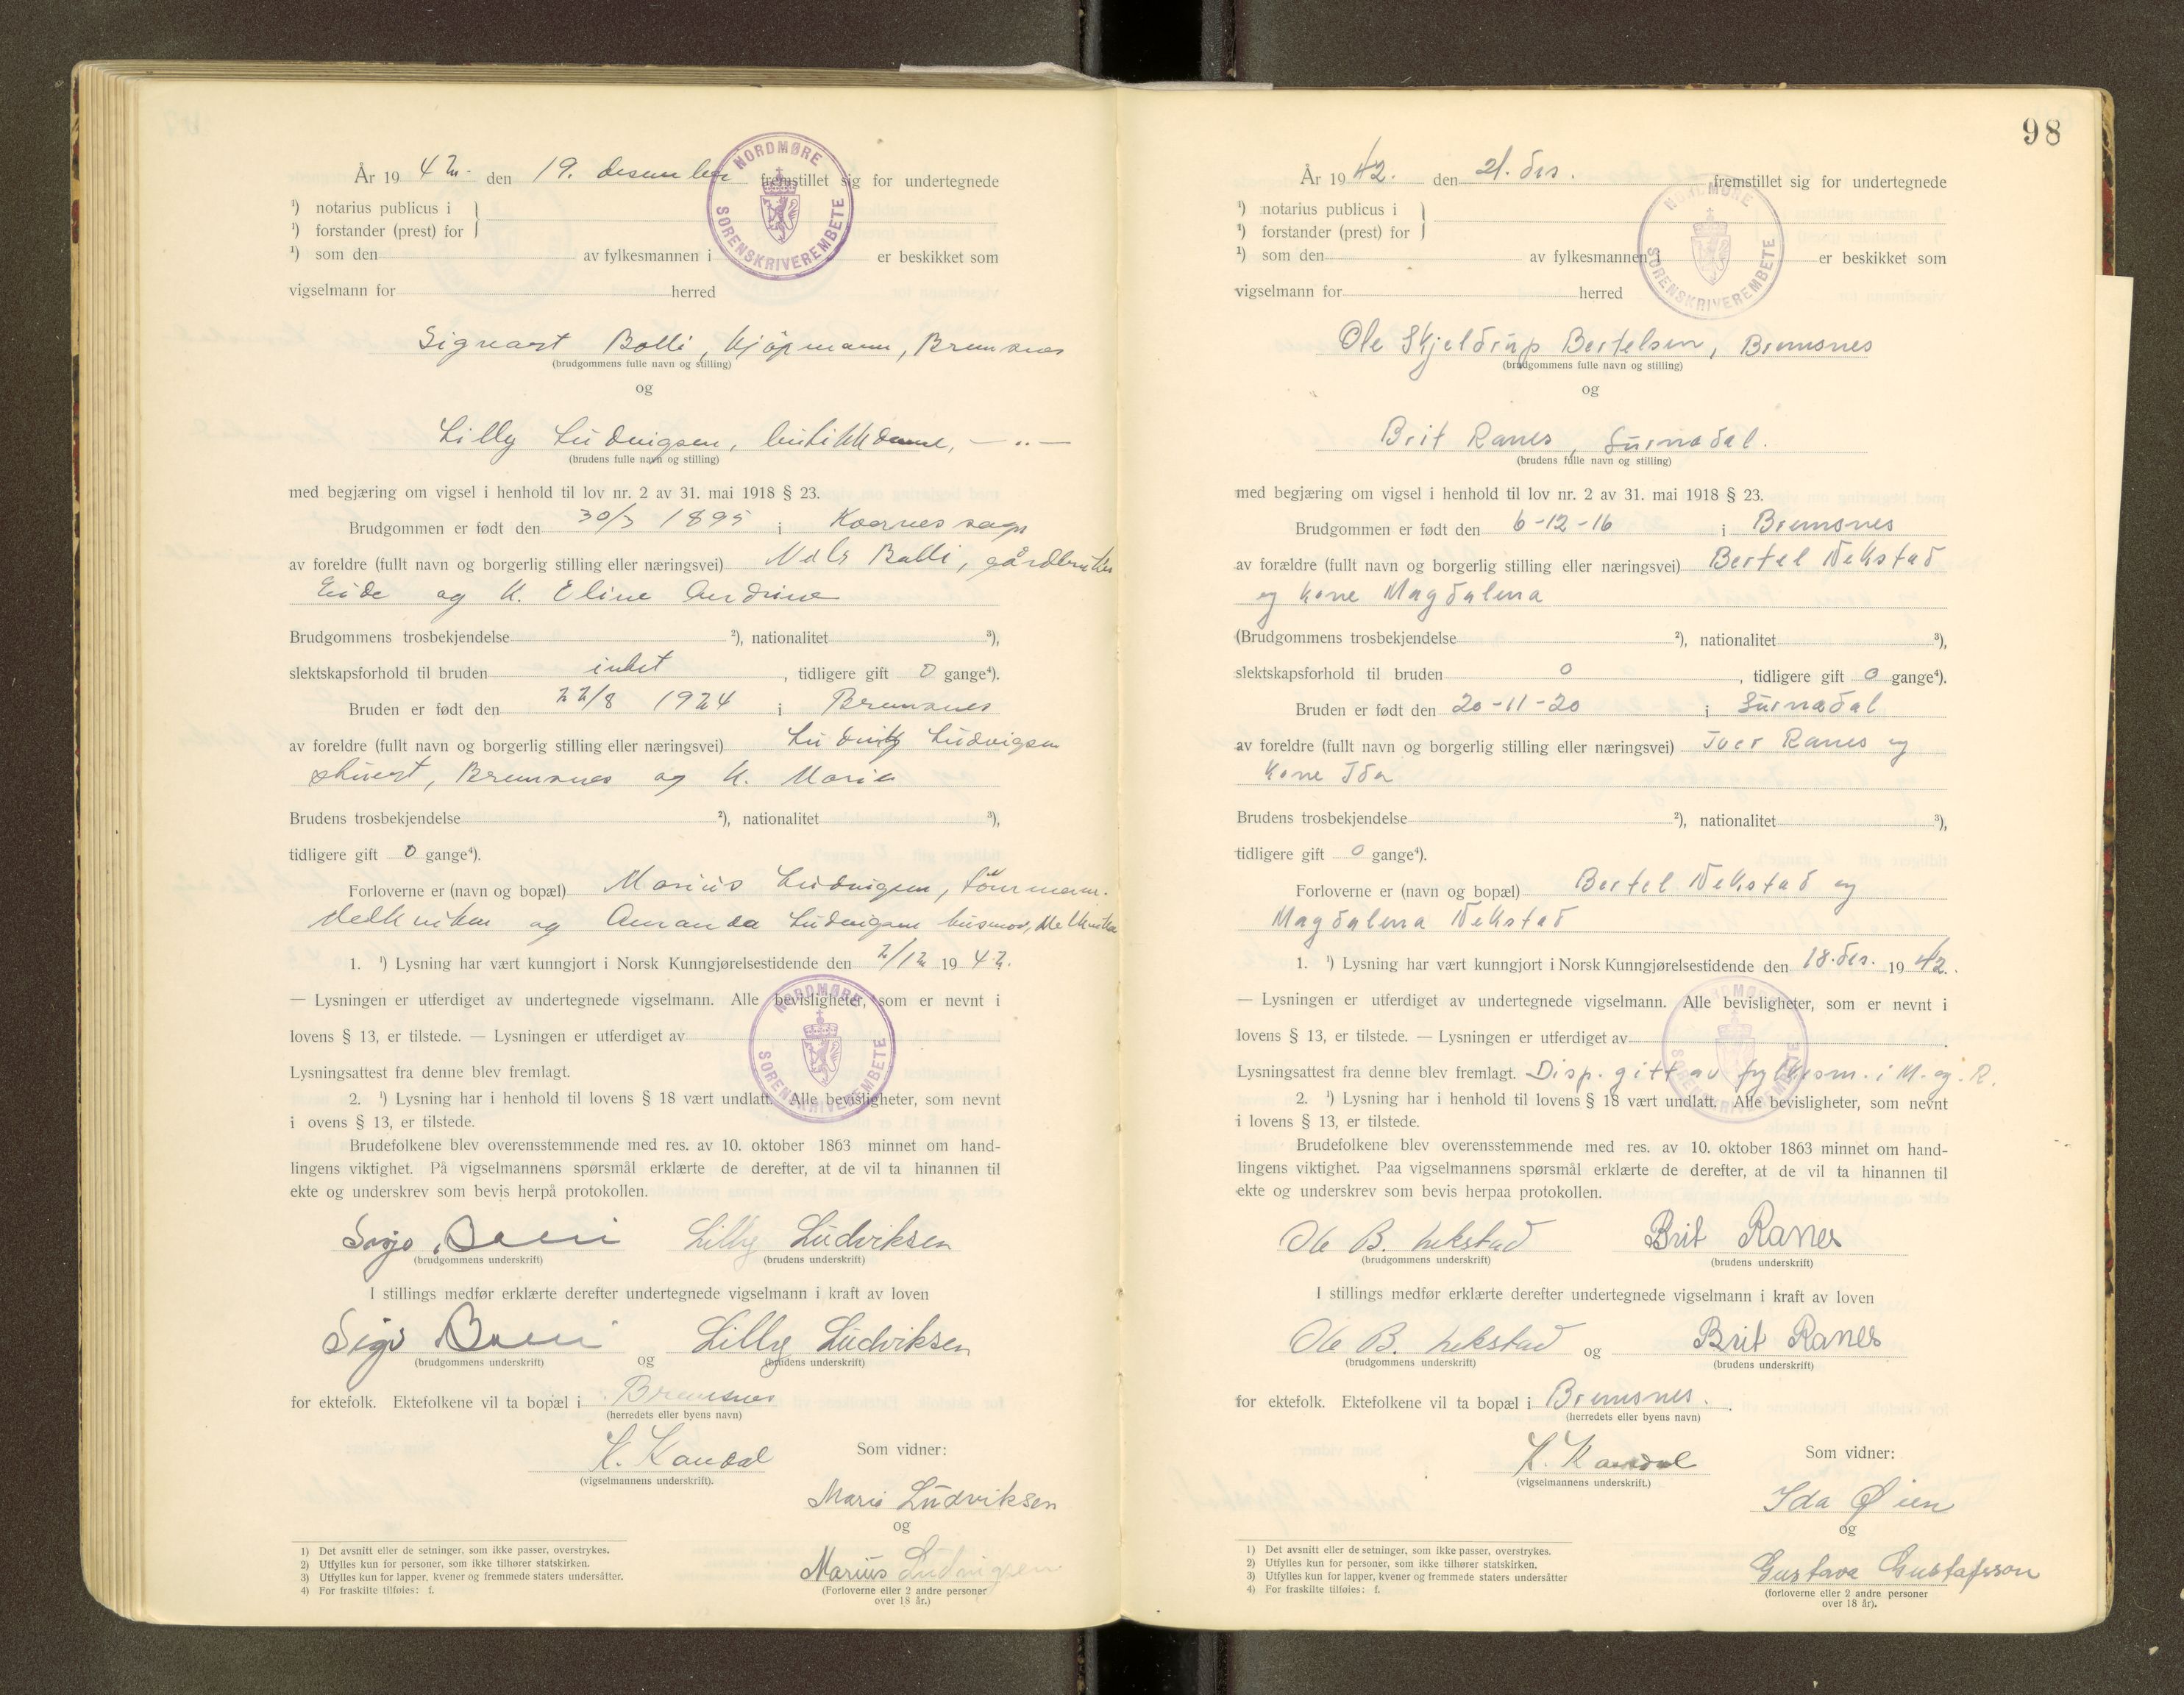 År 19 42. den 19. desember fremstillet sig for undertegnede
NORDMØRE SORENSKRIVEREMBETE
¹) notarius publicus i
¹) forstander (prest) for
¹) som den av fylkesmannen i er beskikket som
vigselmann for herred
Sigvart Bolli, kjøpmann, Bremsnes
(brudgommens fulle navn og stilling)
og
Lilly Ludvigsen, butikkdame, — " —
(brudens fulle navn og stilling)
med begjæring om vigsel i henhold til lov nr. 2 av 31. mai 1918 § 23.
Brudgommen er født den 30/3 1895 i Kornes
av foreldre (fullt navn og borgerlig stilling eller næringsvei) Nils Balli, gårdbruker
Eide og K. Eline Andrine
Brudgommens trosbekjendelse ²), nationalitet ³),
slektskapsforhold til bruden intet , tidligere gift 0 gange⁴).
Bruden er født den 22/8 1924 i Bremsnes
av foreldre (fullt navn og borgerlig stilling eller næringsvei) Ludvig Ludvigsen
Bremsnes og K. Marie
Brudens trosbekjendelse ²), nationalitet ³),
tidligere gift 0 gange⁴).
Forloverne er (navn og bopæl) Marius Ludvigsen, tömmerm.
Melkvikan og Amanda Ludvigsen husmor, Melkvikan
1. ¹) Lysning har vært kunngjort i Norsk Kunngjørelsestidende den 2/12 19 42.
— Lysningen er utferdiget av undertegnede vigselmann. Alle bevisligheter, som er nevnt i
lovens § 13, er tilstede. — Lysningen er utferdiget av
NORDMØRE SORENSKRIVEREMBETE
Lysningsattest fra denne blev fremlagt.
2. ¹) Lysning har i henhold til lovens § 18 vært undlatt. Alle bevisligheter, som nevnt
i ovens § 13, er tilstede.
Brudefolkene blev overensstemmende med res. av 10. oktober 1863 minnet om hand-
lingens viktighet. På vigselmannens spørsmål erklærte de derefter, at de vil ta hinannen til
ekte og underskrev som bevis herpå protokollen.
Lilly Ludviksen
(brudgommens underskrift) (brudens underskrift)
I stillings medfør erklærte derefter undertegnede vigselmann i kraft av loven
Sigv Lilly Ludviksen
(brudgommens underskrift) og (brudens underskrift)
for ektefolk. Ektefolkene vil ta bopæl i Bremsnes
(herredets eller byens navn)
K. Kandal Som vidner:
(vigselmannens underskrift).
Marie Ludviksen
og
Marius Ludvigsen
(Forloverne eller 2 andre personer
over 18 år.)
1) Det avsnitt eller de setninger, som ikke passer, overstrykes.
2) Utfylles kun for personer, som ikke tilhører statskirken.
3) Utfylles kun for lapper, kvener og fremmede staters undersåtter.
4) For fraskilte tilføies: f.
98
År 19 42. den 21. des. fremstillet sig for undertegnede
NORDMØRE SORENSKRIVEREMBETE
¹) notarius publicus i
¹) forstander (prest) for
¹) som den av fylkesmannen i er beskikket som
vigselmann for herred
Ole Skjeldrup Bertelsen, Bremsnes
(brudgommens fulle navn og stilling)
og
Brit Ranes, Surnadal.
(brudens fulle navn og stilling)
med begjæring om vigsel i henhold til lov nr. 2 av 31. mai 1918 § 23.
Brudgommen er født den 6-12-16 i Bremsnes
av forældre (fullt navn og borgerlig stilling eller næringsvei) Bertel Nekstad
og kone Magdalena
(Brudgommens trosbekjendelse ²), nationalitet ³),
slektskapsforhold til bruden 0 , tidligere gift 0 gange⁴).
Bruden er født den 20-11-20 i Surnadal
av foreldre (fullt navn og borgerlig stilling eller næringsvei) Iver Ranes og
kone Ida
Brudens trosbekjendelse ²), nationalitet ³),
tidligere gift 0 gange⁴).
Forloverne er (navn og bopæl) Bertel Nekstad og
Magdalena Nekstad
1. ¹) Lysning har vært kunngjort i Norsk Kunngjørelsestidende den 18. des. 19 42.
— Lysningen er utferdiget av undertegnede vigselmann. Alle bevisligheter, som er nevnt i
lovens § 13, er tilstede. — Lysningen er utferdiget av
NORDMØRE SORENSKRIVEREMBETE
Lysningsattest fra denne blev fremlagt. Disp. gitt av fylkesm. i M. og. R.
2. ¹) Lysning har i henhold til lovens § 18 vært undlatt. Alle bevisligheter, som nevnt
i lovens § 13, er tilstede.
Brudefolkene blev overensstemmende med res. av 10. oktober 1863 minnet om hand-
lingens viktighet. Paa vigselmannens spørsmål erklærte de derefter, at de vil ta hinannen til
ekte og underskrev som bevis herpaa protokollen.
Ole B. Nekstad Brit Ranes
(brudgommens underskrift) (brudens underskrift)
I stillings medfør erklærte derefter undertegnede vigselmann i kraft av loven
Ole B. Nekstad og Brit Ranes
(brudgommens underskrift) (brudens underskrift)
for ektefolk. Ektefolkene vil ta bopæl i Bremsnes.
(herredets eller byens navn)
K. Kandal Som vidner:
(vigselmannens underskrift.)
Ida Øien
og
Gustava Gustafsson
(forloverne eller 2 andre personer
over 18 år).
1) Det avsnitt eller de setninger, som ikke passer, overstrykes.
2) Utfylles kun for personer, som ikke tilhører statskirken.
3) Utfylles kun for lapper, kvener og fremmede staters undersåtter
4) For fraskilte tilføies: f.